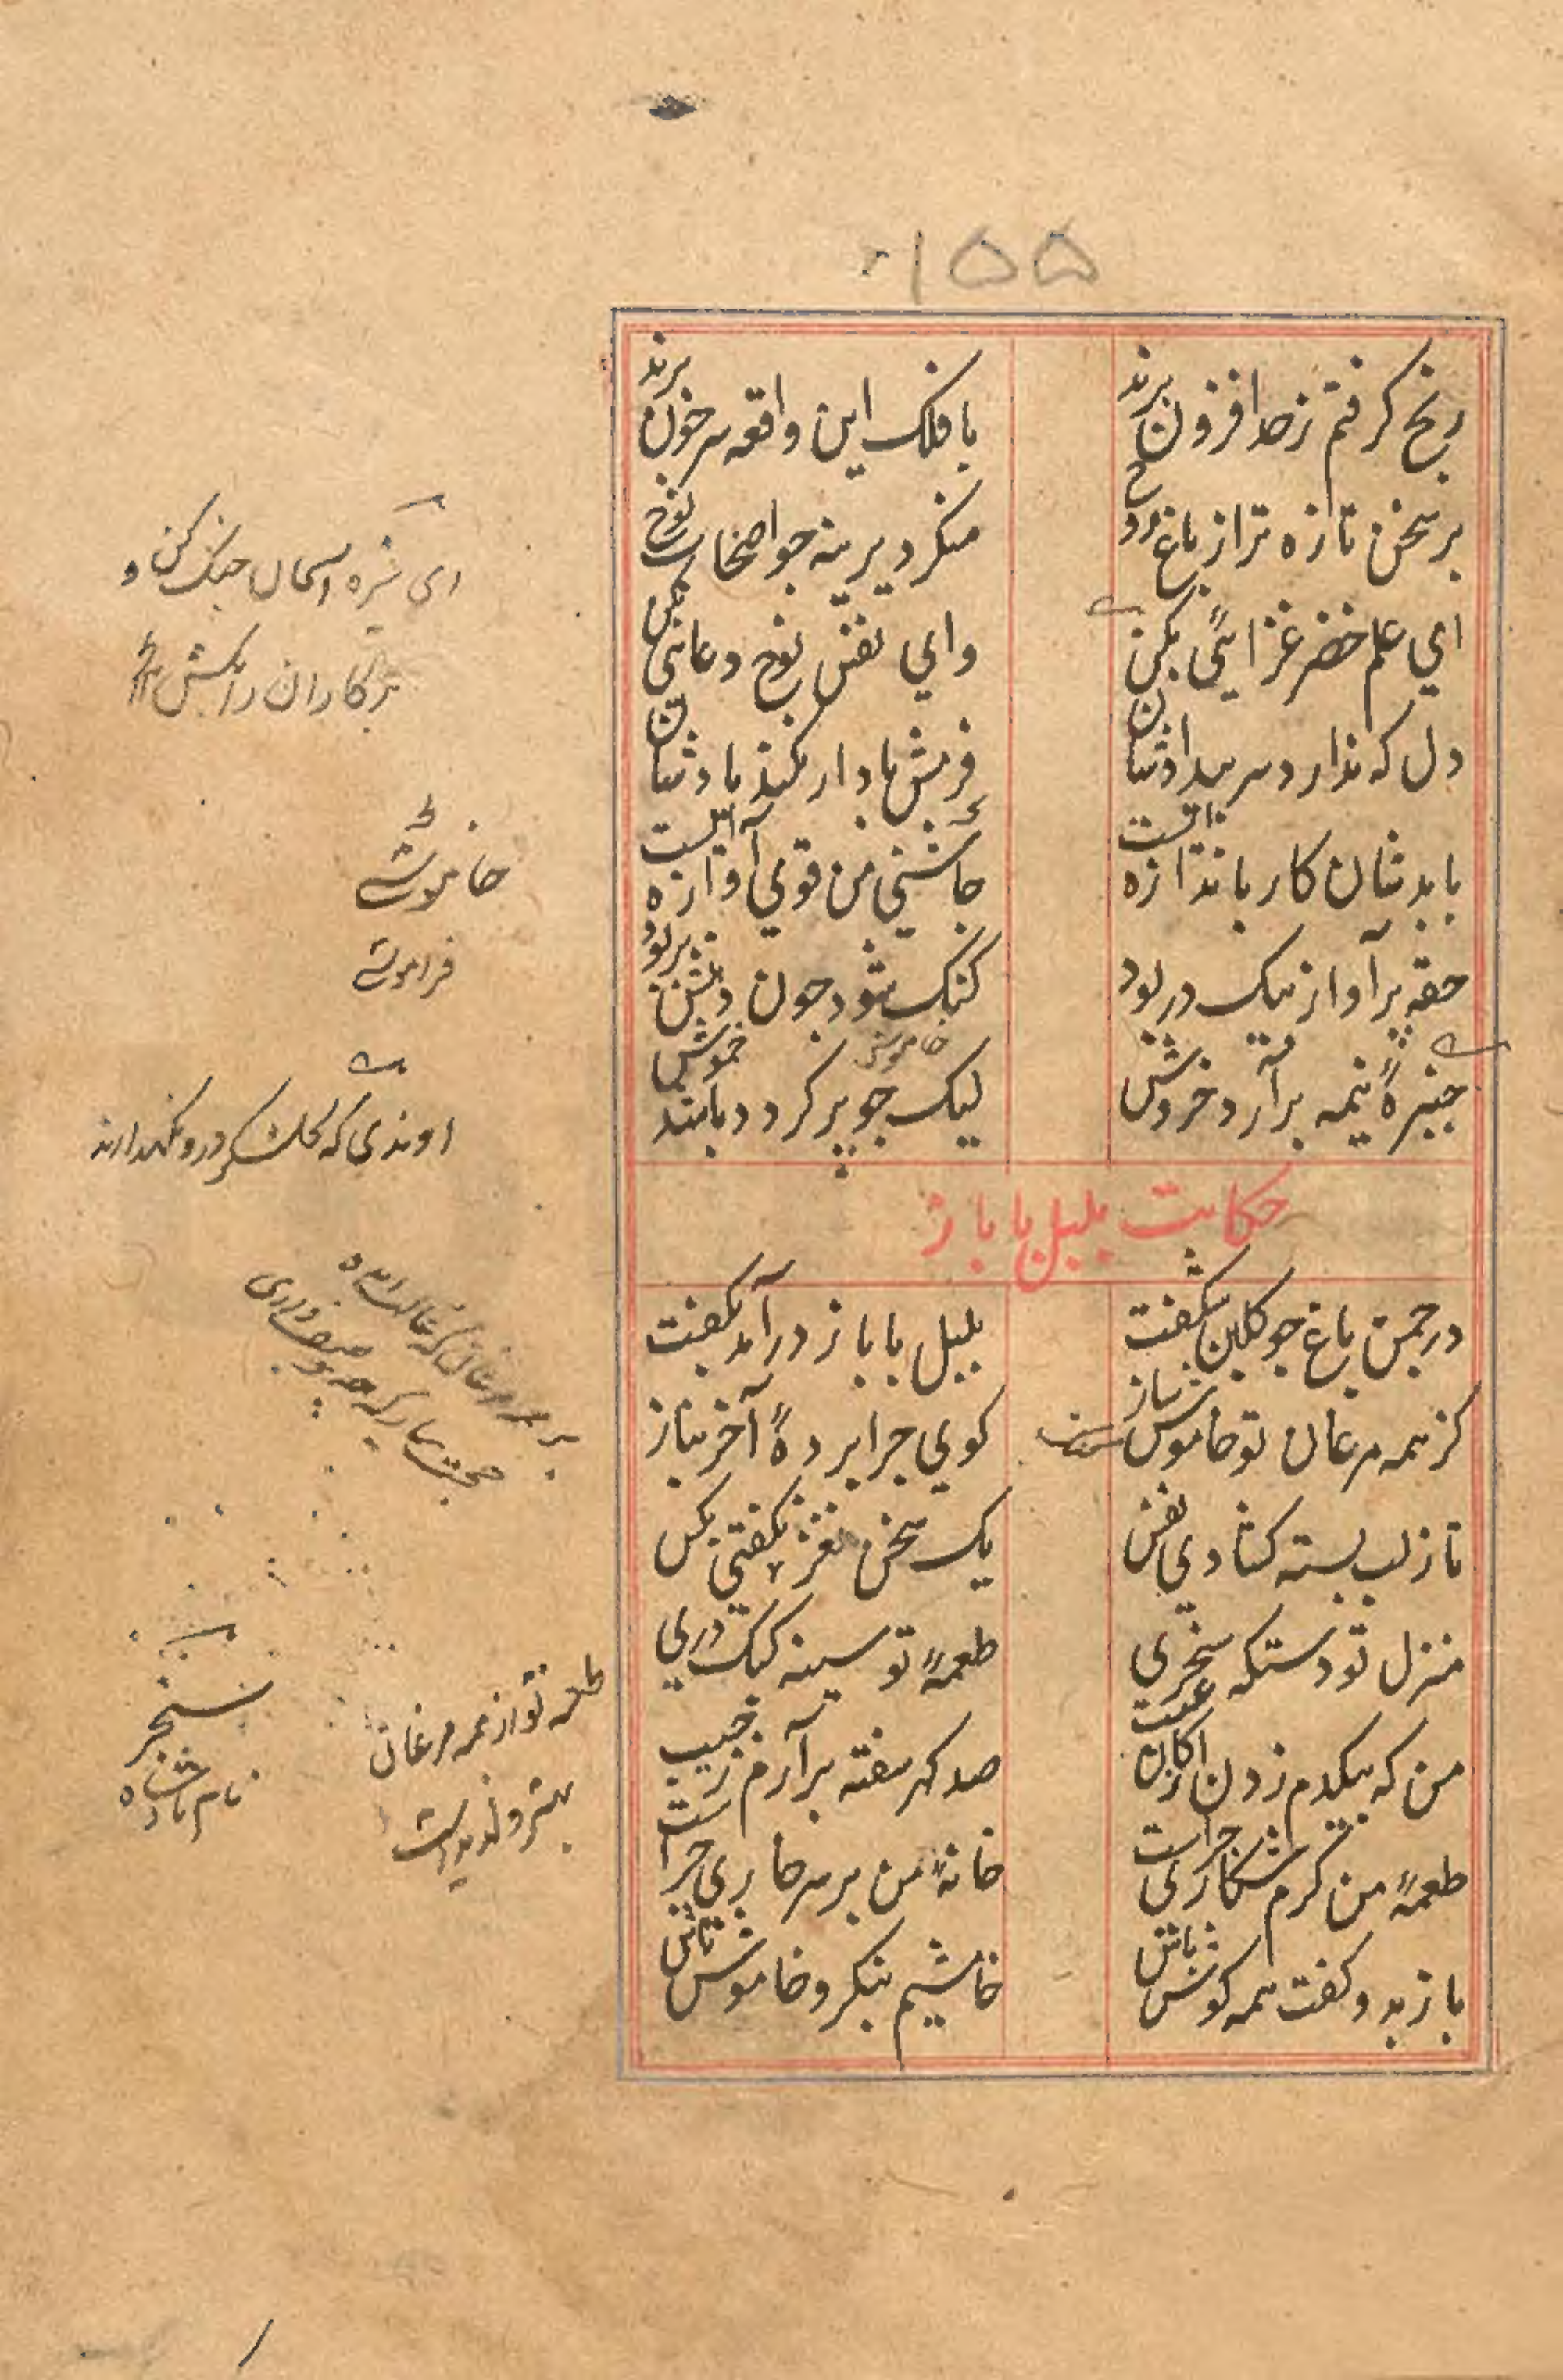 ۱۵۵
رنج گرفتم زحد افزون برند با فلک این واقعه سر خون برند
بر سخن تازه تر از باغ روح منکر دیرینه جو اصحاب نوح
ای علم خضر غزایئی بکن وای نفس نوح دعائی بکن
دل که ندارد سر بیدادشان فرش بادار کند یادشان
با بدشان کار باندازه ایست خامشی من قوی آوازه ایست
حقه پر آواز بیک در بود گنگ شود جون دهنش پر بود
خاموش
جنبرهٔ نیمه برآرد خروش لیک جو پر گردد باشد خموش
حکایت بلبل با باز
در جمن باغ جو گلبن شگفت بلبل با باز در آمد بگفت
کز همه مرغان تو خاموش ساز گوی جرا بردهٔ آخر بباز
تا ز لب بسته گشادی نفس یک سخن نغز نگفتی بکس
منزل تو دستگه سنجری طعمهٔ تو سینه کبک دری
من که بیکدم زدن از کان غیب صد گهر سفته برآرم ز جیب
طعمهٔ من کرم شکاری جراست خانهٔ من بر سر خاری جراست
باز بدو گفت همه گوش باش خامشیم بنگر و خاموش باش
ای خضر اسمان جنک کن و
بدکاران را بکش
خاموشے
فراموشے
اوندی که کلشکر درو نکهدارند
بر همه مرغان که غالب آمده
طعمه تو از همه مرغان
بهتر و لذیذ است
سنجر
نام بادشاه